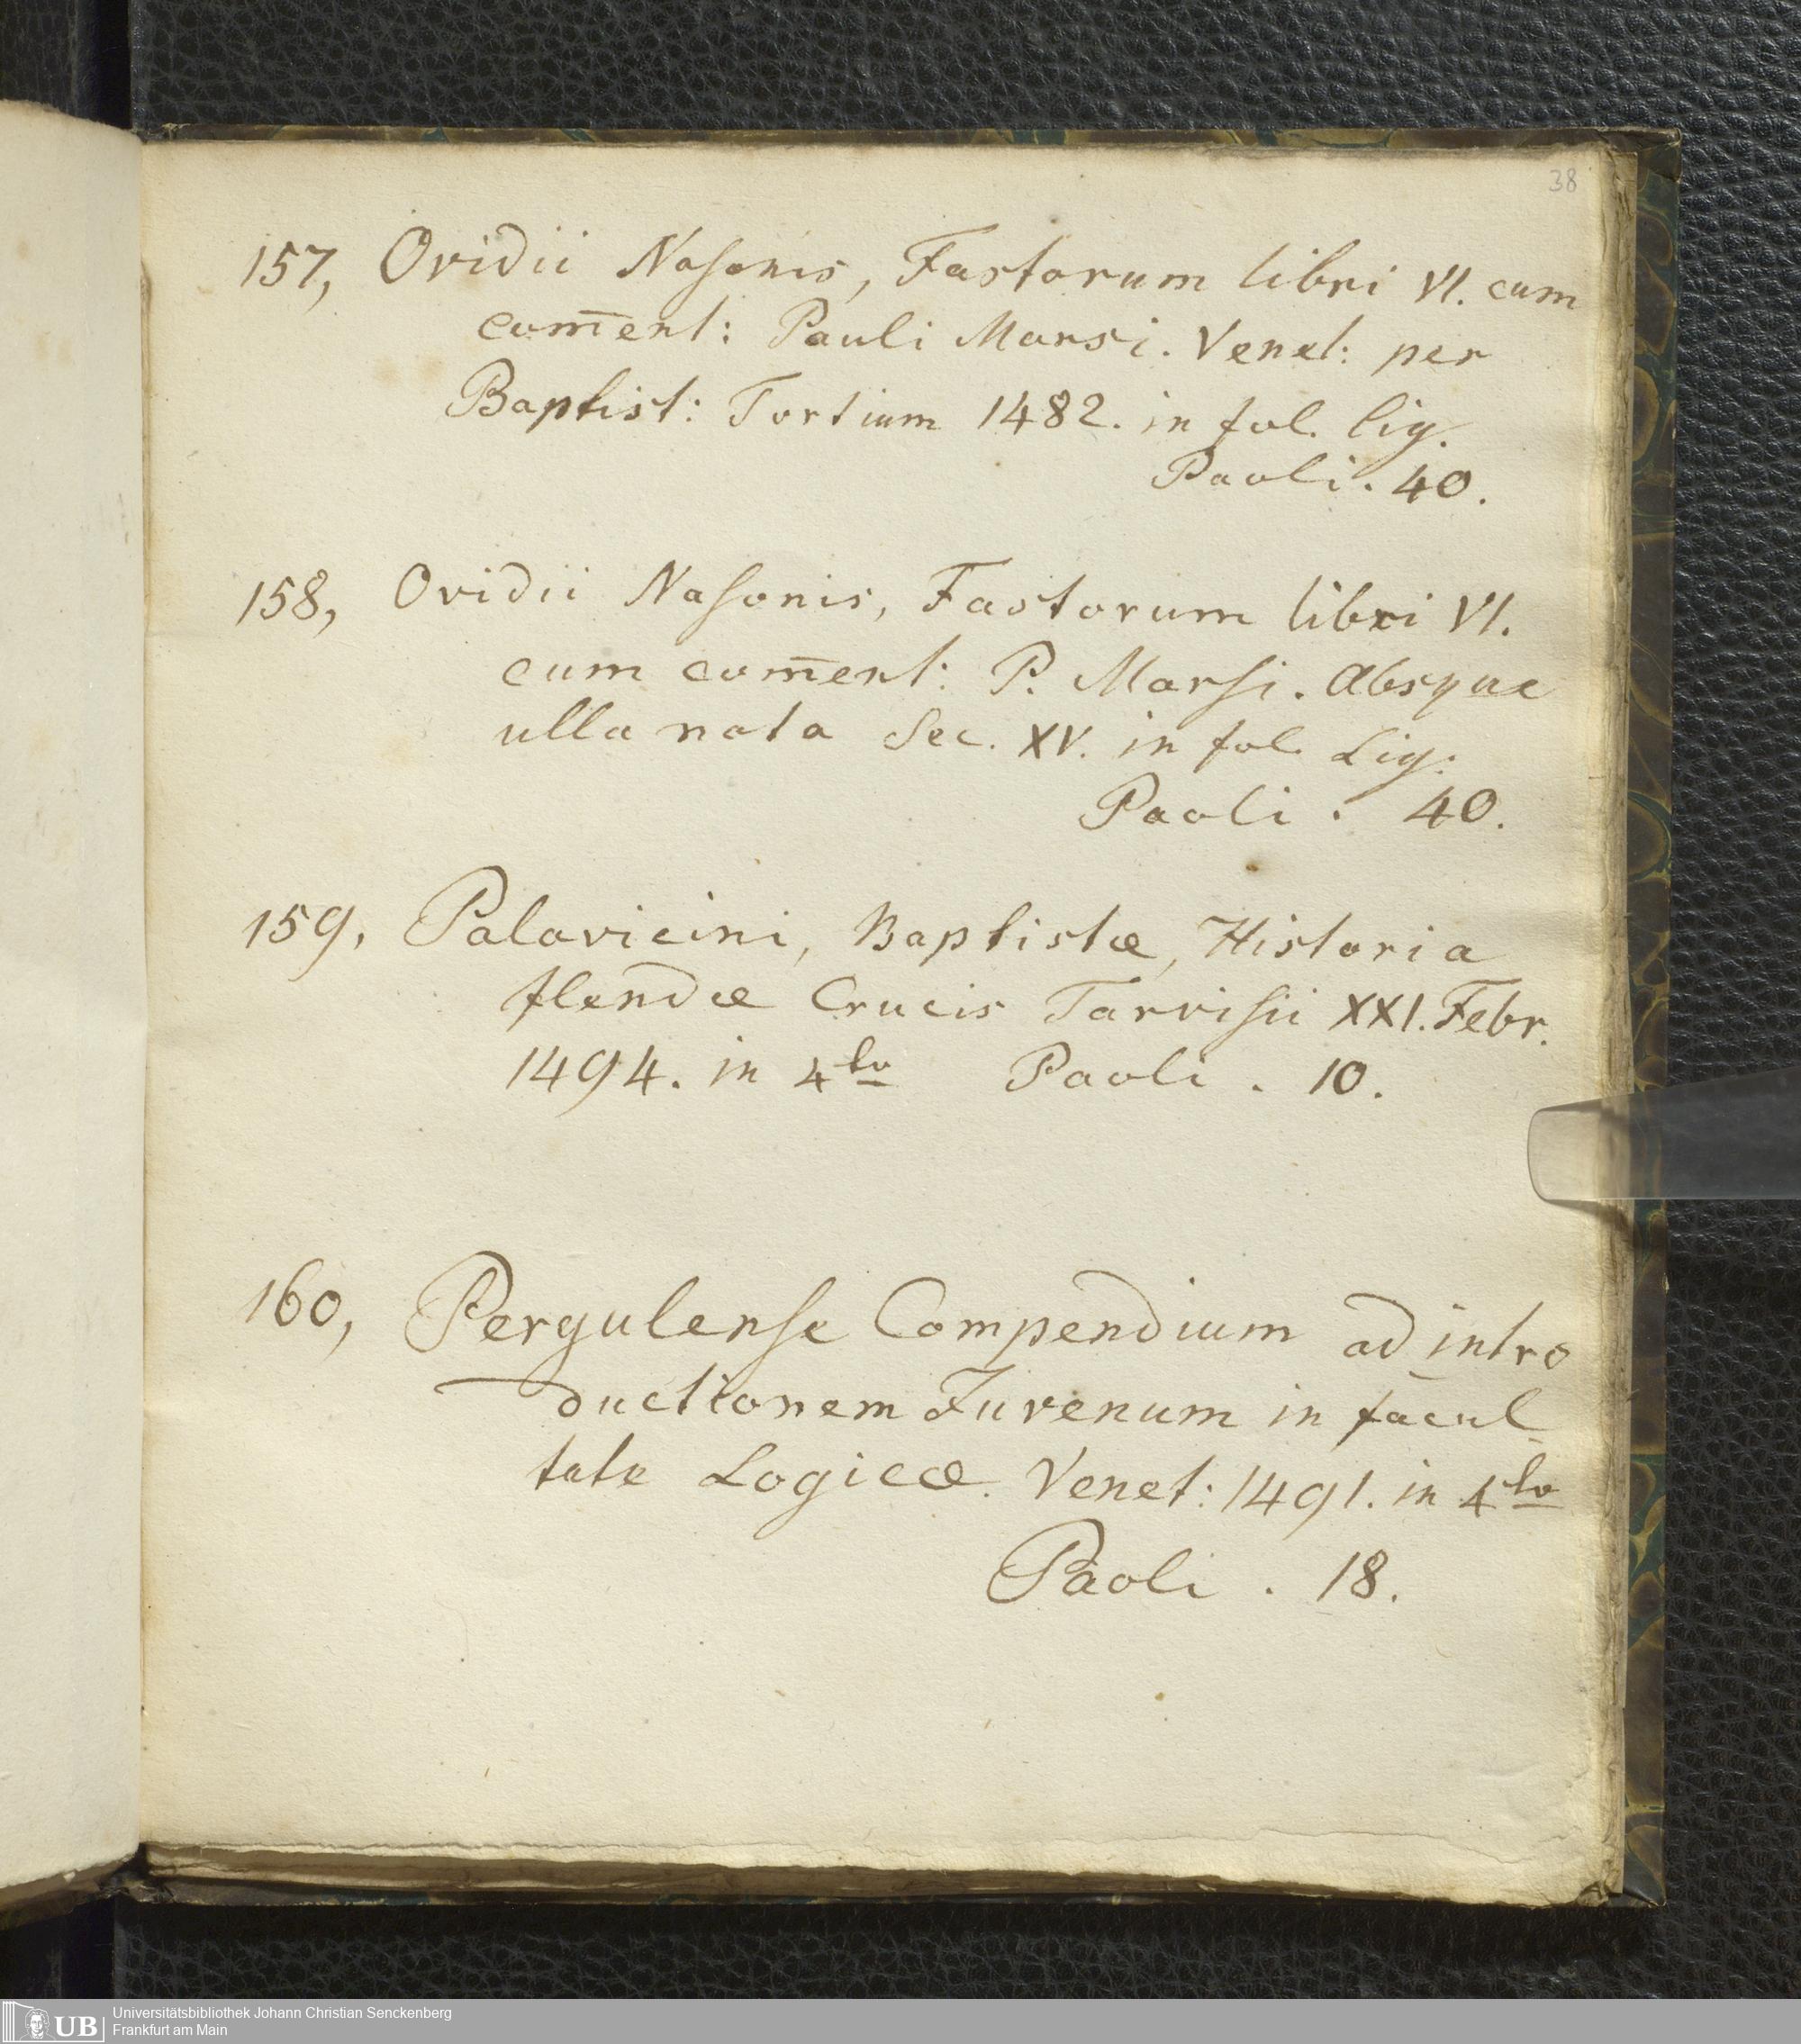 38
157, Ovidii Nasonis, Fastorum libri VI. cum
com̄ent: Pauli Marsi. Venet: per
Baptist: Tortium 1482. in fol. lig.
Paoli. 40.
158, Ovidii Nasonis, Fastorum libri VI.
cum com̄ent: P. Marsi. Absque
ulla nota Sec. XV. in fol. Lig:
Paoli . 40.
159, Palavicini, Baptistæ, Historia
flendæ Crucis Tarvisii XXI. Febr.
1494. in 4to Paoli . 10.
160, Pergulense Compendium ad intro
ductionem Juvenum in facul
tate Logicæ. Venet: 1491. in 4to
Paoli . 18.
UB Universitätsbibliothek Johann Christian Senckenberg
Frankfurt am Main